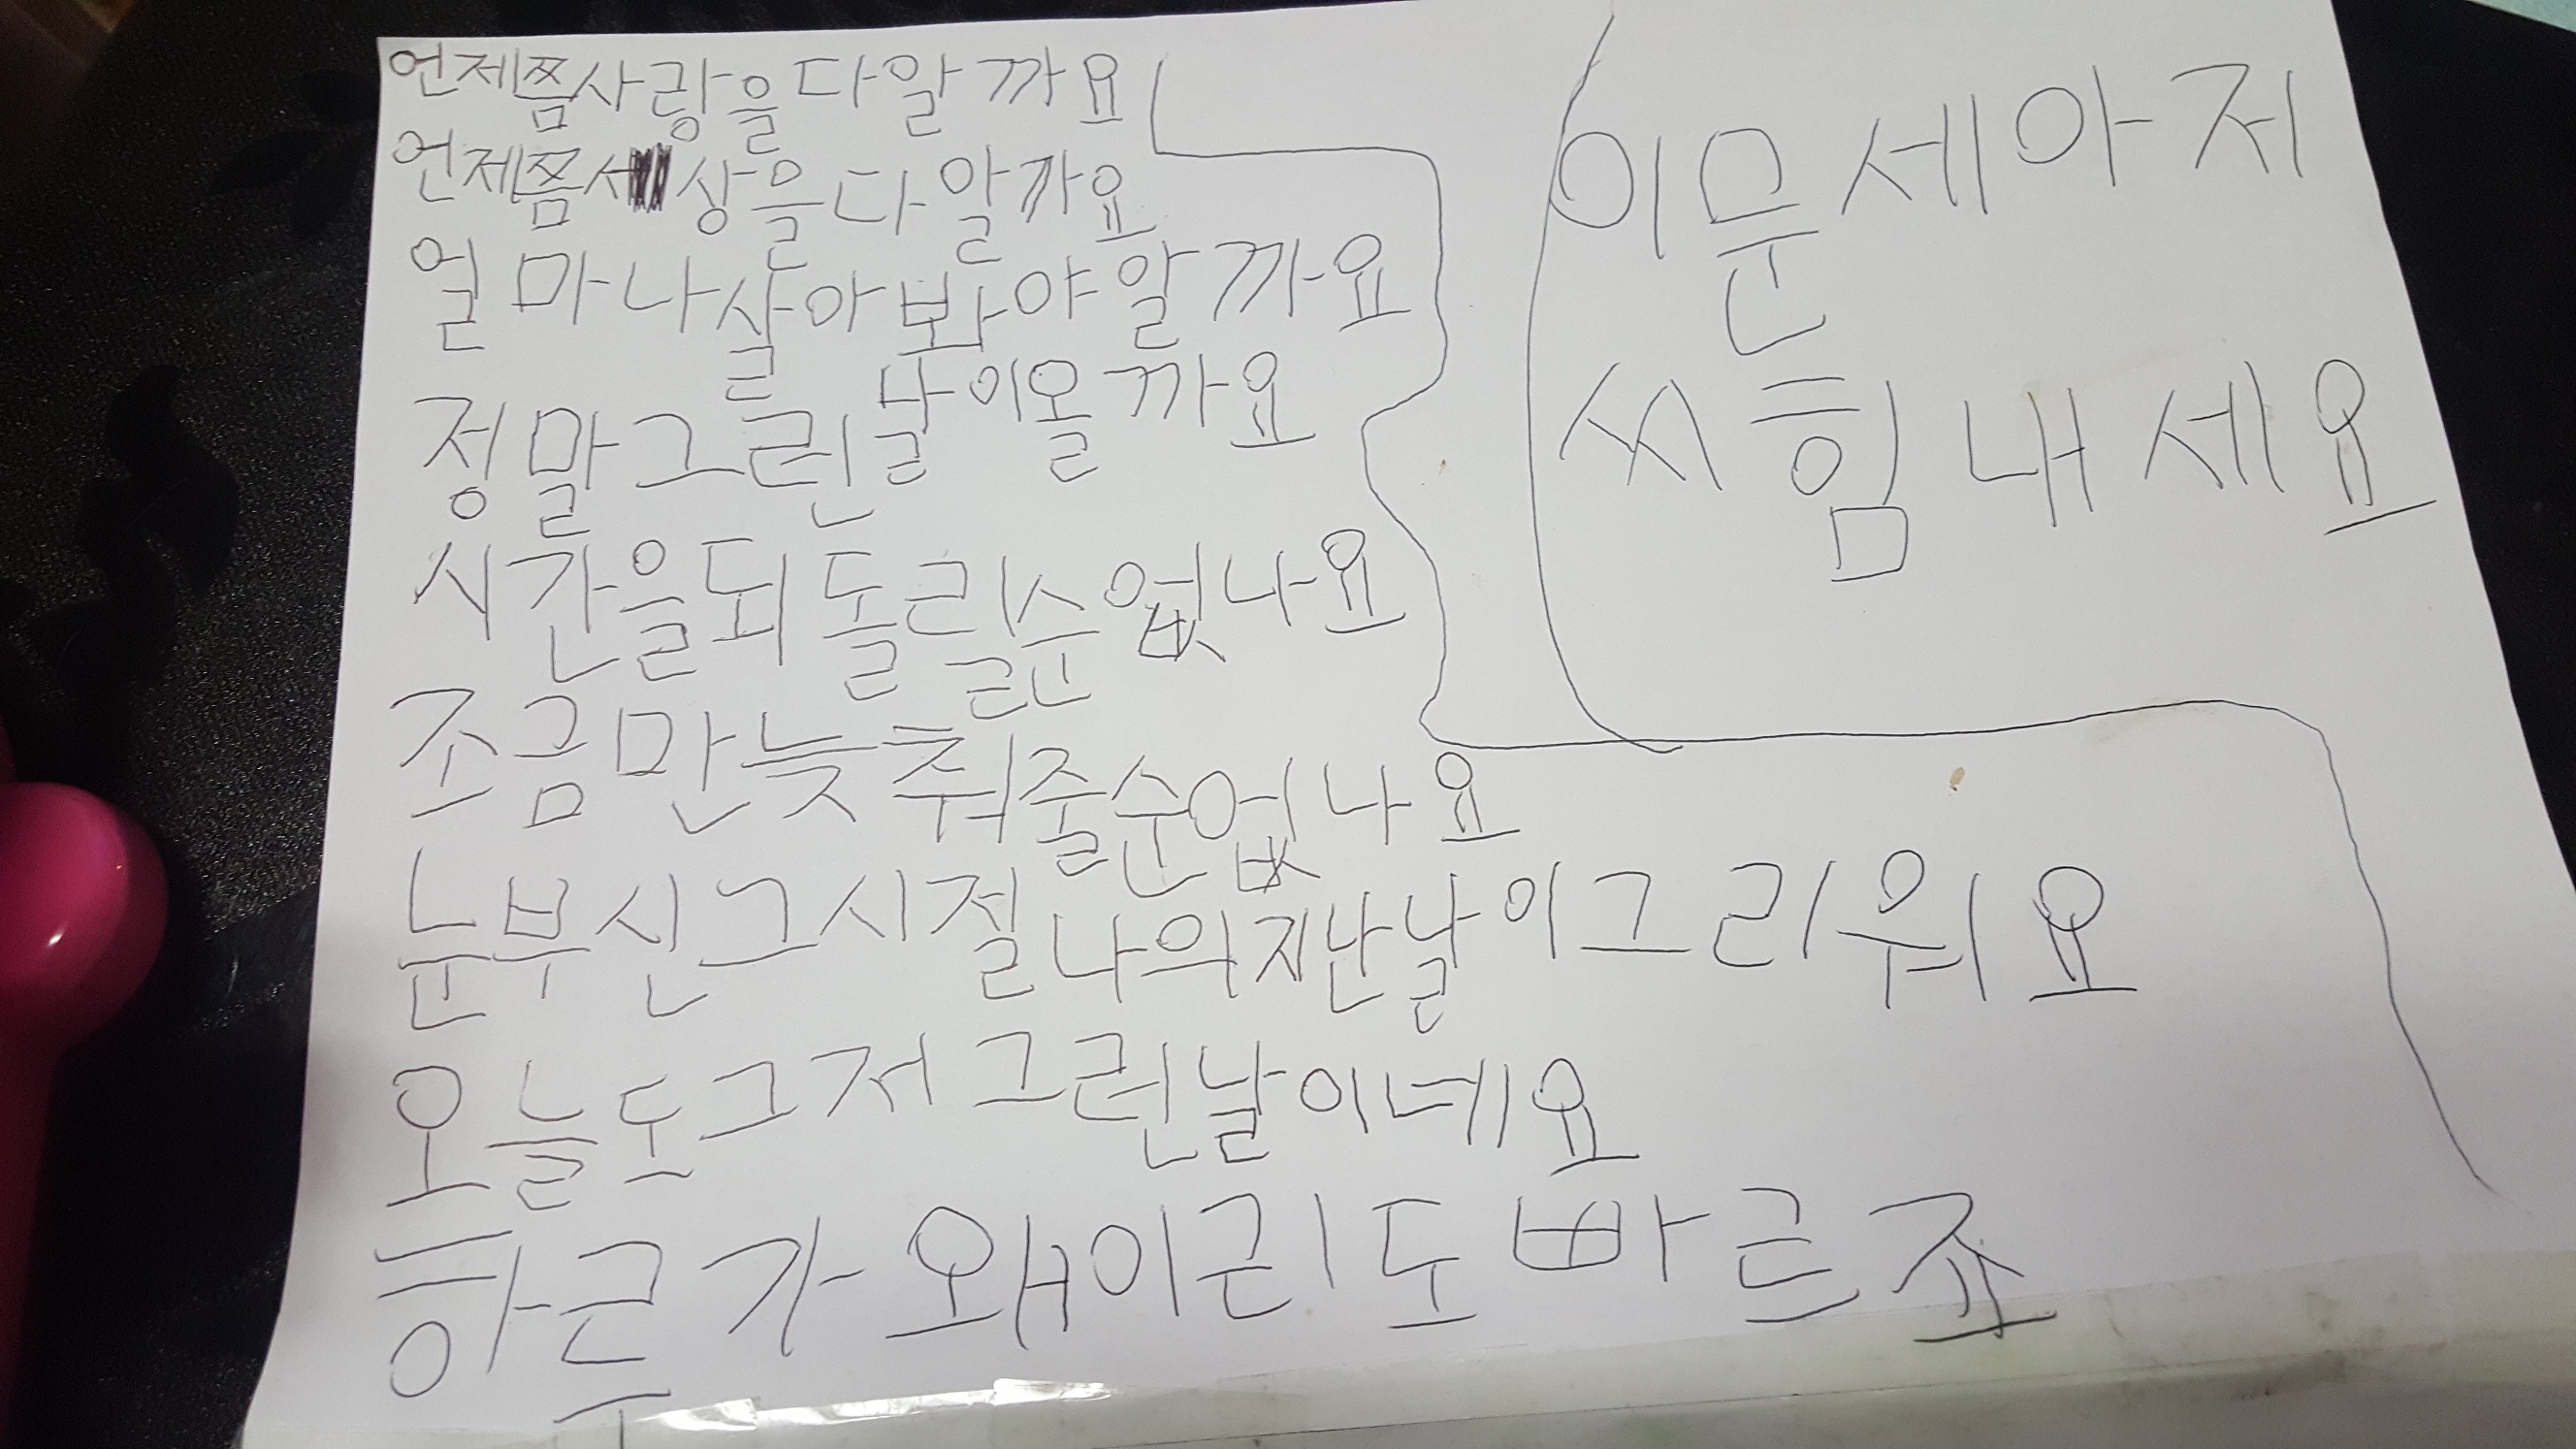 언제쯤사랑을다알까요
언제쯤세상을다알까요
얼마나살아봐야알까요
정말그런날이올까요
시간을되돌릴순없나요
조금만늦춰줄순없나요
눈부신그시절나의지난날이그리워요
오늘도그저그런날이네요
하루가왜이리도빠르죠
이문세아저
씨힘내세요